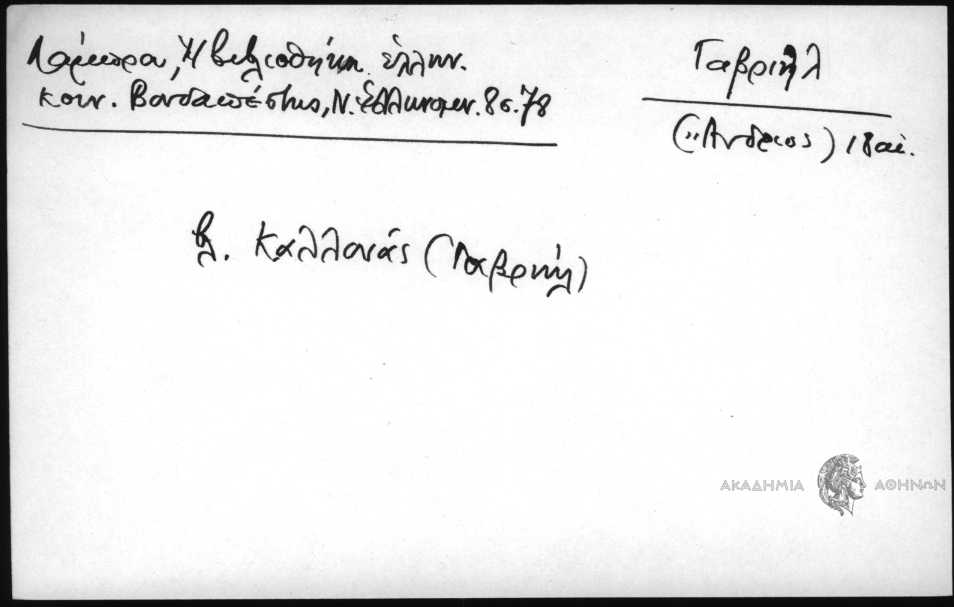 Λάμπρου, Ἡ βιβλιοθήκη ἑλλην.
κοιν. Βουδαπέστης, Ν. Ἑλληνομν. 8 σ. 78
Γαβριήλ
("Ανδριος) 18 αἰ.
βλ. Καλλονάς (Γαβριήλ)
ΑΚΑΔΗΜΙΑ ΑΘΗΝΩΝ